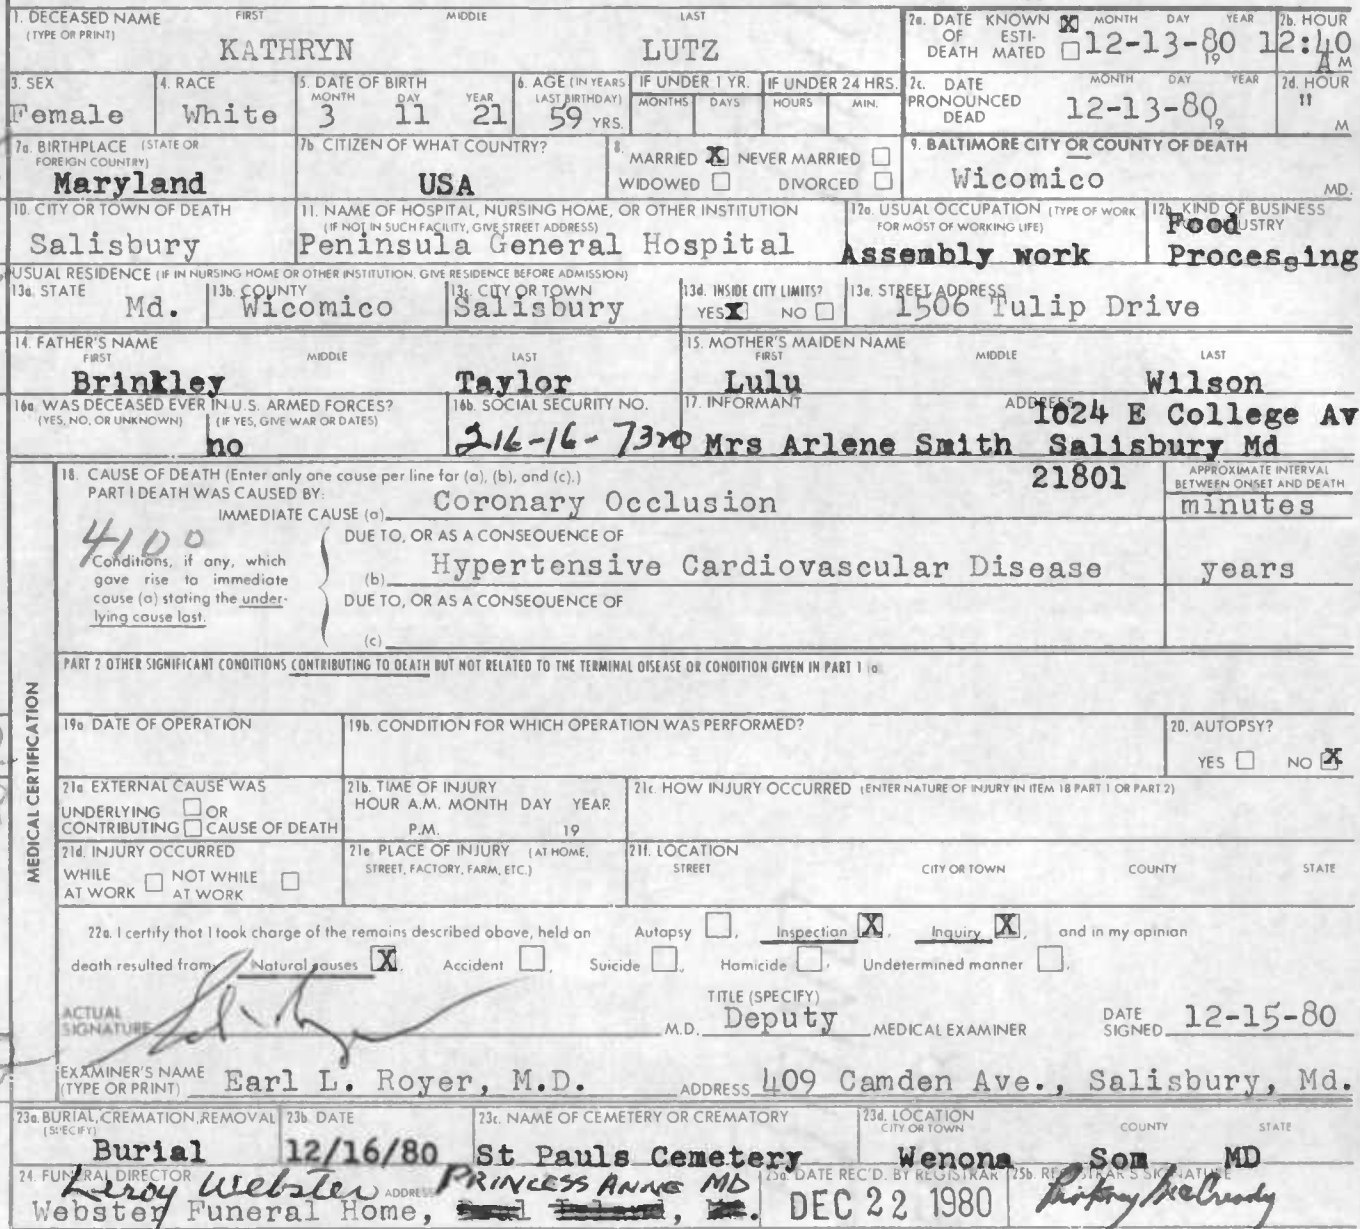 1. DECEASED NAME FIRST MIDDLE LAST
(TYPE OR PRINT)
KATHRYN LUTZ
2a. DATE KNOWN X MONTH DAY YEAR
OF ESTI-
DEATH MATED 12-13-80 19
2b. HOUR
12:40
A M
3. SEX
Female
4. RACE
White
5. DATE OF BIRTH
MONTH DAY YEAR
3 11 21
6. AGE (IN YEARS
LAST BIRTHDAY)
59 YRS.
IF UNDER 1 YR.
MONTHS DAYS
IF UNDER 24 HRS.
HOURS MIN.
2c. DATE MONTH DAY YEAR
PRONOUNCED
DEAD 12-13-80 19
2d. HOUR
"
M
7a. BIRTHPLACE (STATE OR
FOREIGN COUNTRY)
Maryland
7b. CITIZEN OF WHAT COUNTRY?
USA
8.
MARRIED X NEVER MARRIED
WIDOWED DIVORCED
9. BALTIMORE CITY OR COUNTY OF DEATH
Wicomico MD.
10. CITY OR TOWN OF DEATH
Salisbury
11. NAME OF HOSPITAL, NURSING HOME, OR OTHER INSTITUTION
(IF NOT IN SUCH FACILITY, GIVE STREET ADDRESS)
Peninsula General Hospital
12a. USUAL OCCUPATION (TYPE OF WORK
FOR MOST OF WORKING LIFE)
Assembly work
12b. KIND OF BUSINESS
Food USTRY
Processing
USUAL RESIDENCE (IF IN NURSING HOME OR OTHER INSTITUTION, GIVE RESIDENCE BEFORE ADMISSION)
13a. STATE
Md.
13b. COUNTY
Wicomico
13c. CITY OR TOWN
Salisbury
13d. INSIDE CITY LIMITS?
YES X NO
13e. STREET ADDRESS
1506 Tulip Drive
14. FATHER'S NAME
FIRST MIDDLE LAST
Brinkley Taylor
15. MOTHER'S MAIDEN NAME
FIRST MIDDLE LAST
Lulu Wilson
16a. WAS DECEASED EVER IN U.S. ARMED FORCES?
(YES, NO, OR UNKNOWN) (IF YES, GIVE WAR OR DATES)
no
16b. SOCIAL SECURITY NO.
216-16-7320
17. INFORMANT ADDRESS
1024 E College Av
Mrs Arlene Smith Salisbury Md
21801
18. CAUSE OF DEATH (Enter only one cause per line for (a), (b), and (c).)
PART I DEATH WAS CAUSED BY:
IMMEDIATE CAUSE (a) Coronary Occlusion
APPROXIMATE INTERVAL
BETWEEN ONSET AND DEATH
minutes
4100
Conditions, if any, which
gave rise to immediate
cause (a) stating the under-
lying cause last.
DUE TO, OR AS A CONSEQUENCE OF
(b) Hypertensive Cardiovascular Disease years
DUE TO, OR AS A CONSEQUENCE OF
(c)
PART 2 OTHER SIGNIFICANT CONDITIONS CONTRIBUTING TO DEATH BUT NOT RELATED TO THE TERMINAL DISEASE OR CONDITION GIVEN IN PART 1 (a
MEDICAL CERTIFICATION
19a. DATE OF OPERATION
19b. CONDITION FOR WHICH OPERATION WAS PERFORMED?
20. AUTOPSY?
YES NO X
21a. EXTERNAL CAUSE WAS
UNDERLYING OR
CONTRIBUTING CAUSE OF DEATH
21b. TIME OF INJURY
HOUR A.M. MONTH DAY YEAR
P.M. 19
21c. HOW INJURY OCCURRED (ENTER NATURE OF INJURY IN ITEM 18 PART 1 OR PART 2)
21d. INJURY OCCURRED
WHILE NOT WHILE
AT WORK AT WORK
21e. PLACE OF INJURY (AT HOME,
STREET, FACTORY, FARM, ETC.)
21f. LOCATION
STREET CITY OR TOWN COUNTY STATE
22a. I certify that I took charge of the remains described above, held an Autopsy , Inspection X , Inquiry X , and in my opinion
death resulted from Natural causes X , Accident , Suicide , Homicide , Undetermined manner .
ACTUAL
SIGNATURE
M.D.
TITLE (SPECIFY)
Deputy MEDICAL EXAMINER
DATE
SIGNED 12-15-80
EXAMINER'S NAME
(TYPE OR PRINT) Earl L. Royer, M.D.
ADDRESS 409 Camden Ave., Salisbury, Md.
23a. BURIAL, CREMATION, REMOVAL
(SPECIFY)
Burial
23b. DATE
12/16/80
23c. NAME OF CEMETERY OR CREMATORY
St Pauls Cemetery
23d. LOCATION
CITY OR TOWN COUNTY STATE
Wenona Som MD
24. FUNERAL DIRECTOR
Leroy Webster ADDRESS PRINCESS ANNE MD
Webster Funeral Home,
25a. DATE REC'D. BY REGISTRAR
DEC 22 1980
25b. REGISTRAR'S SIGNATURE